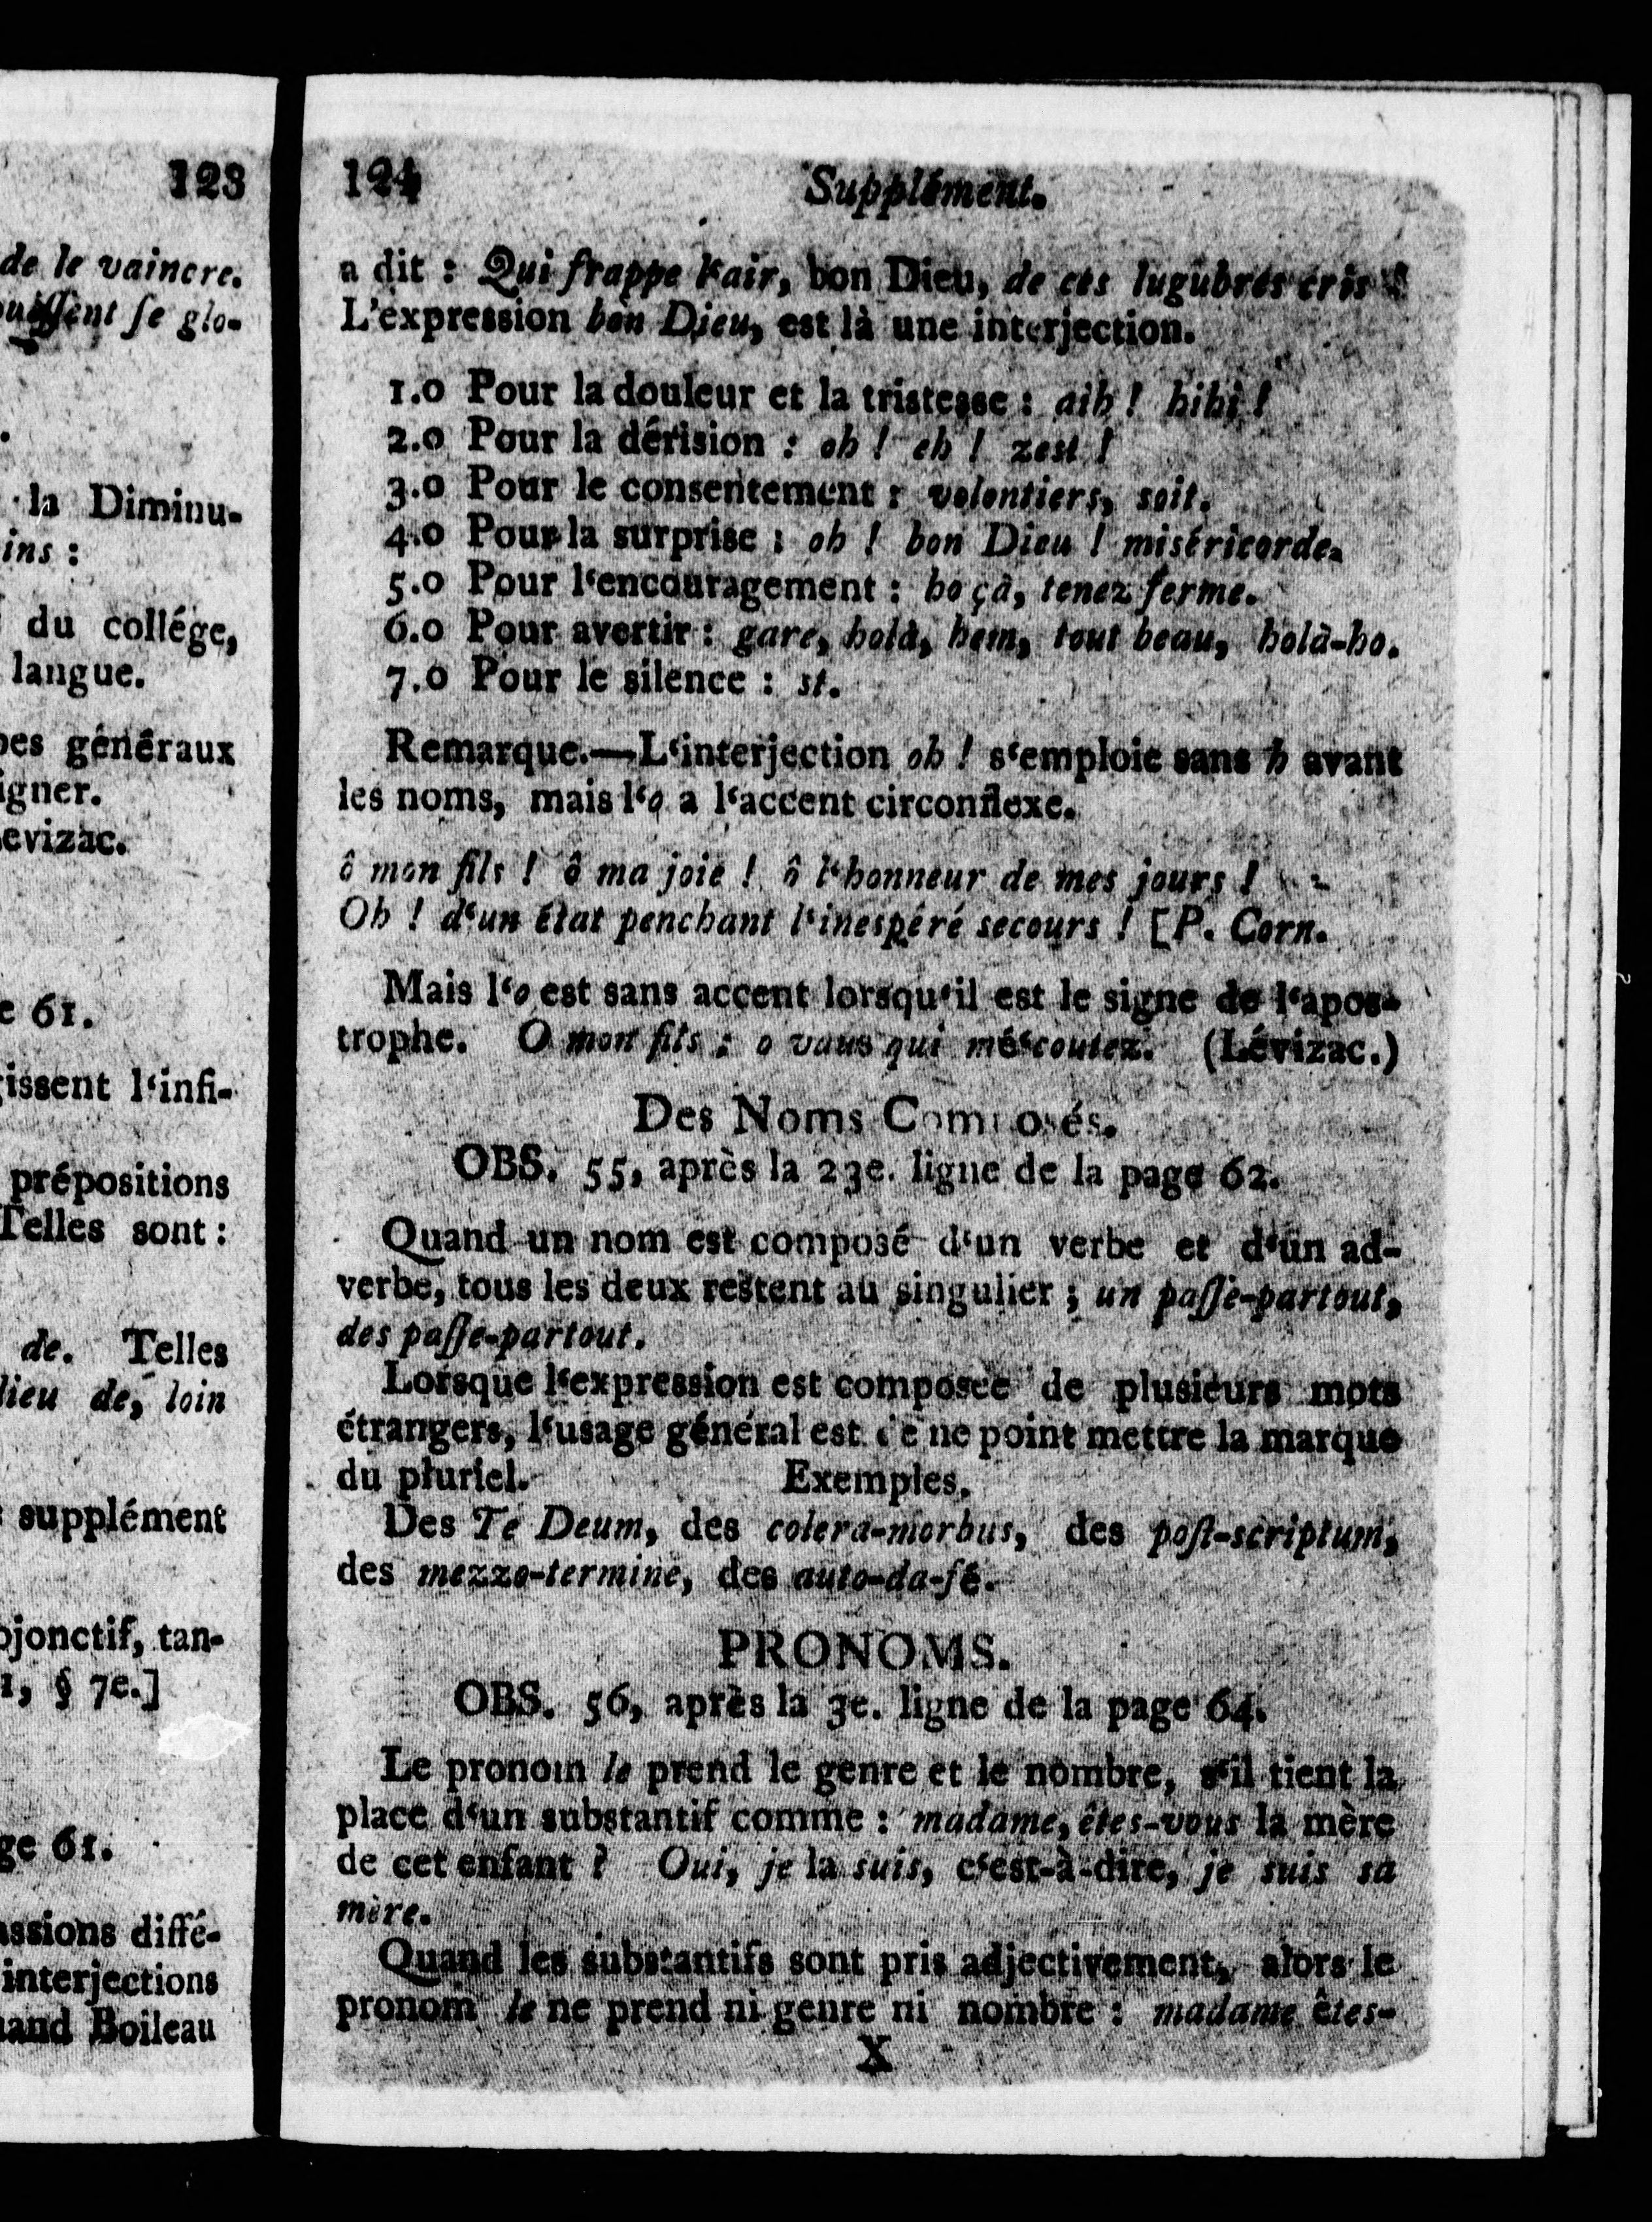 123
de le vaincre.
se glo-
la Diminu-
ins :
du collége,
langue.
pes généraux
igner.
evizac.
e 61.
issent l‘infi-
prépositions
Telles sont :
de. Telles
lieu de, loin
supplément
ojonctif, tan-
1, § 7e.]
ge 61.
assions diffé-
interjections
uand Boileau
124
Supplément.
a dit : Qui frappe l‘air, bon Dieu, de ces lugubres cris ?
L’expression bon Dieu, est là une interjection.
1.o Pour la douleur et la tristesse : aih ! hihi !
2.o Pour la dérision : oh ! eh ! zest !
3.o Pour le consentement : volontiers, soit.
4.o Pour la surprise : oh ! bon Dieu ! miséricorde.
5.o Pour l‘encouragement : ho çà, tenez ferme.
6.o Pour avertir : gare, holà, hem, tout beau, holà-ho.
7.o Pour le silence : st.
Remarque.—L‘interjection oh ! s‘emploie sans h avant
les noms, mais l‘o a l‘accent circonflexe.
ô mon fils ! ô ma joie ! ô l‘honneur de mes jours !
Oh ! d‘un état penchant l‘inespéré secours ! [P. Corn.
Mais l‘o est sans accent lorsqu‘il est le signe de l‘apos-
trophe. O mon fils ; o vous qui mé‘coutez. (Lévizac.)
Des Noms Composés.
OBS. 55, après la 23e. ligne de la page 62.
Quand un nom est composé d‘un verbe et d‘un ad-
verbe, tous les deux restent au singulier ; un paſſe-partout,
des paſſe-partout.
Lorsque l‘expression est composée de plusieurs mots
étrangers, l‘usage général est de ne point mettre la marque
du pluriel. Exemples.
Des Te Deum, des colera-morbus, des poſt-scriptum,
des mezzo-termine, des auto-da-fé.
PRONOMS.
OBS. 56, après la 3e. ligne de la page 64.
Le pronom le prend le genre et le nombre, s‘il tient la
place d‘un substantif comme : madame, êtes-vous la mère
de cet enfant ? Oui, je la suis, c‘est-à-dire, je suis sa
mère.
Quand les substantifs sont pris adjectivement, alors le
pronom le ne prend ni genre ni nombre : madame êtes-
X